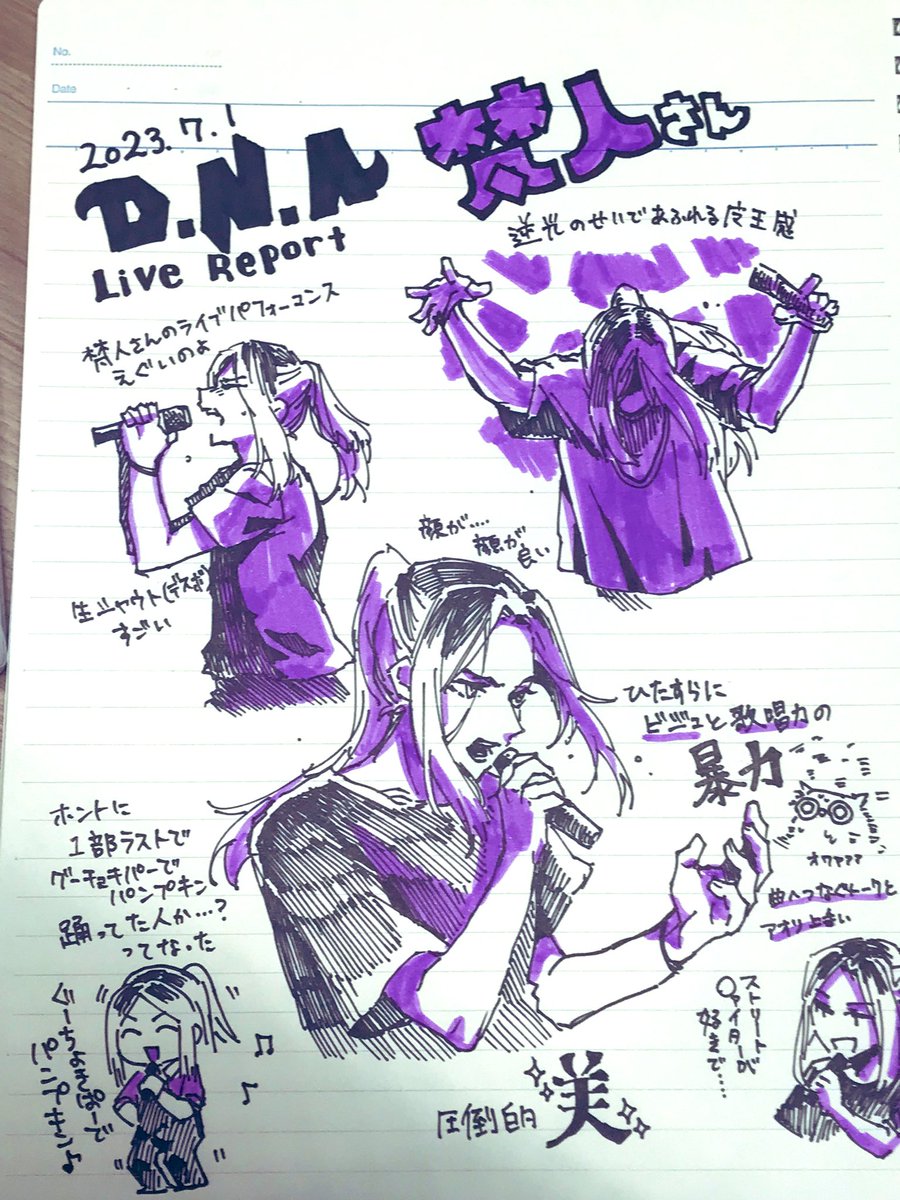 No.
Date
2023.7.1
D.N.A
Live Report
梵人さん
逆光のせいであふれる帝王感
梵人さんのライブパフォーマンス
えぐいのよ
生シャウト(デスボ)
すごい
顔が....
顔が
良い
ひたすらに
ビジュと歌唱力の
暴力
オワァァァ
曲へつなぐトークと
アオリ上手い
ホントに
1部ラストで
グーチョキパーで
パンプキン
踊ってた人か…?
ってなった
ぐーちょきぱーで
パンプキン♪
ストリートが
〇ァイターが
好きで……
圧倒的
美